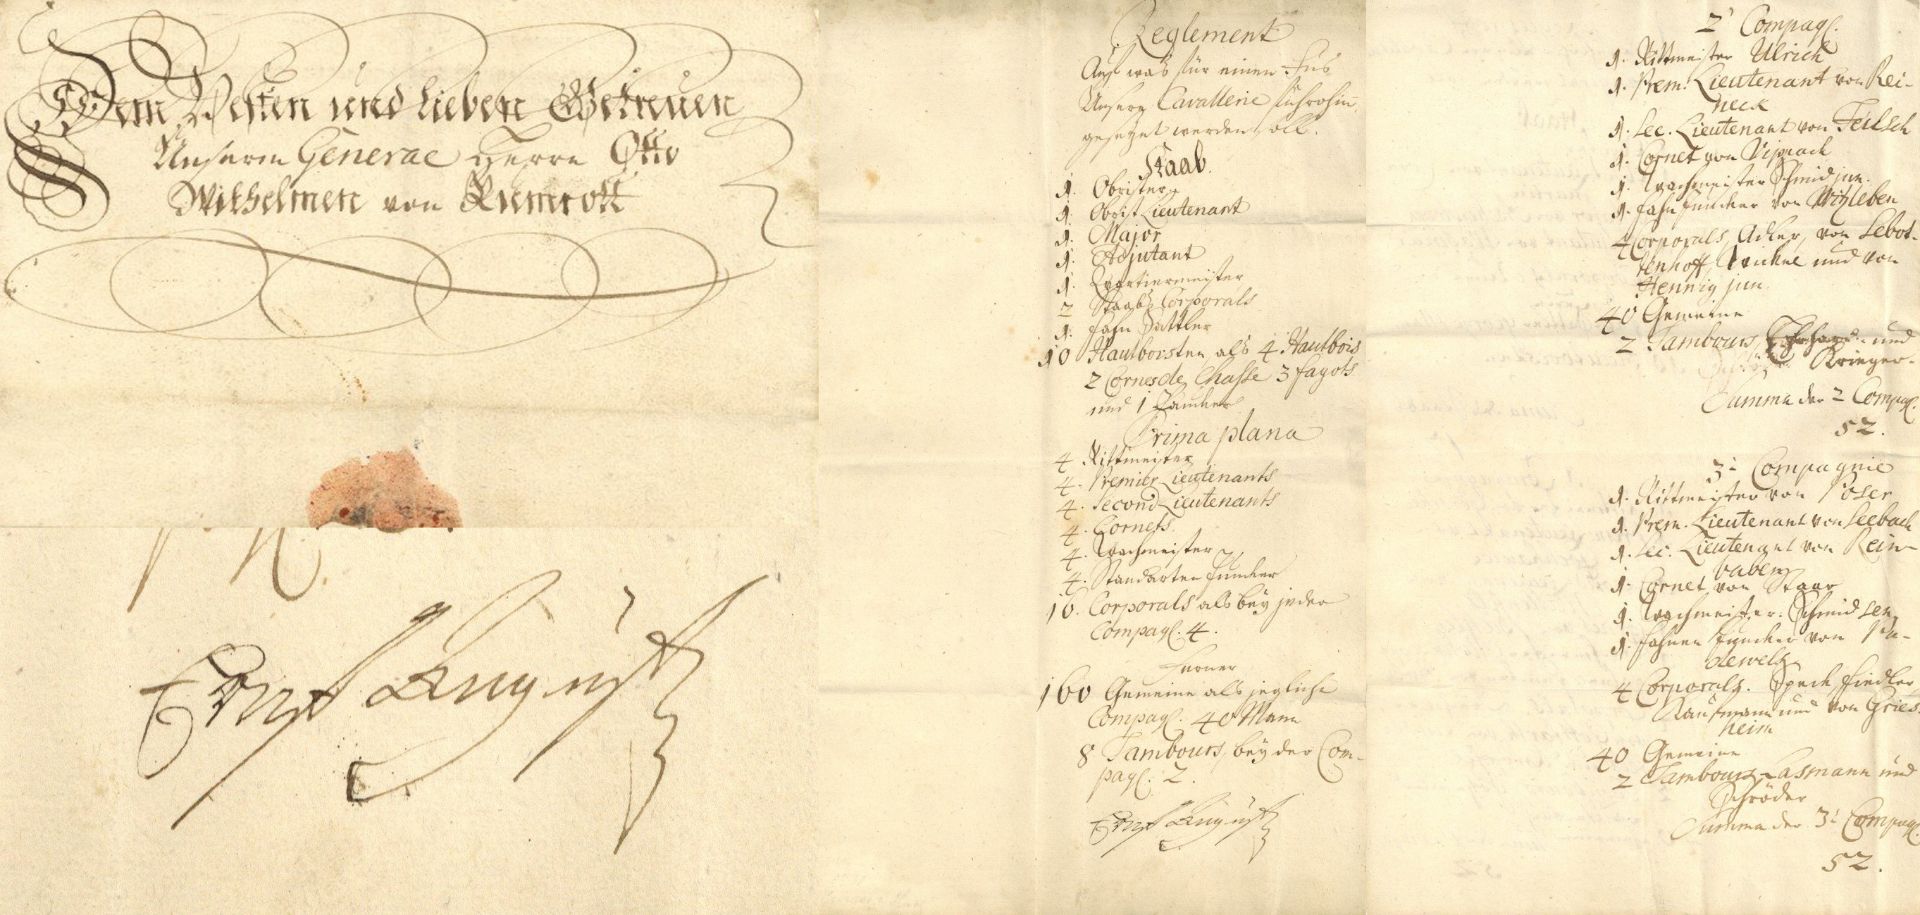 Dem Vesten und lieben Getreuen
Unserm General Herrn Otto
Wilhelmen von Tümrott
Ernst August
Reglement
Auf was für einen Fus
Unsere Cavallerie
gesetzet werden soll.
Staab.
1. Obrister
1. Obrist Lieutenant
1. Major
1. Adjutant
1. Quartiermeister
2 Staabs Corporals
1. Fahn Sattler
10 Hautboisten als 4 Hautbois
2 Cornes de Chasse 3 Fagots
und 1 Paucker
Prima plana
4. Rittmeister
4. Premier Lieutenants
4. Second Lieutenants
4. Cornets.
4. Wachmeister
4. Standarten Juncker
16. Corporals als bey jeder
Compagl. 4.
Ferner
160 Gemeine als jegliche
Compagl. 40 Mann
8 Tambours, bey der Com-
pagl. 2.
Ernst August
2t Compagl.
1. Rittmeister Ulrich
1. Prem. Lieutenant von Rei-
neck
1. Sec. Lieutenant von Teutsch
1. Cornet von Vipach
1. Wachmeister Schmid jun.
1. Fahn Juncker von Witzleben
4 Corporals, Acker, von Lebot-
tenhoff, Kunkel und von
Hennig jun.
40 Gemeine
2 Tambours, und
Krieger.
Summa der 2 Compagl.
52.
3t Compagnie
1. Rittmeister von Poser
1. Prem. Lieutenant von Seebach
1. Sec. Lieutenant von Rein-
baben
1. Cornet von Staar
1. Wachmeister. Schmid sen.
1. Fahnen Juncker von Pu-
dewels
4 Corporals. Speck, Fiedler
Kaufmann und von Gries-
heim
40 Gemeine
2 Tambours Lasmann und
Schröder
Summa der 3t Compagl.
52.